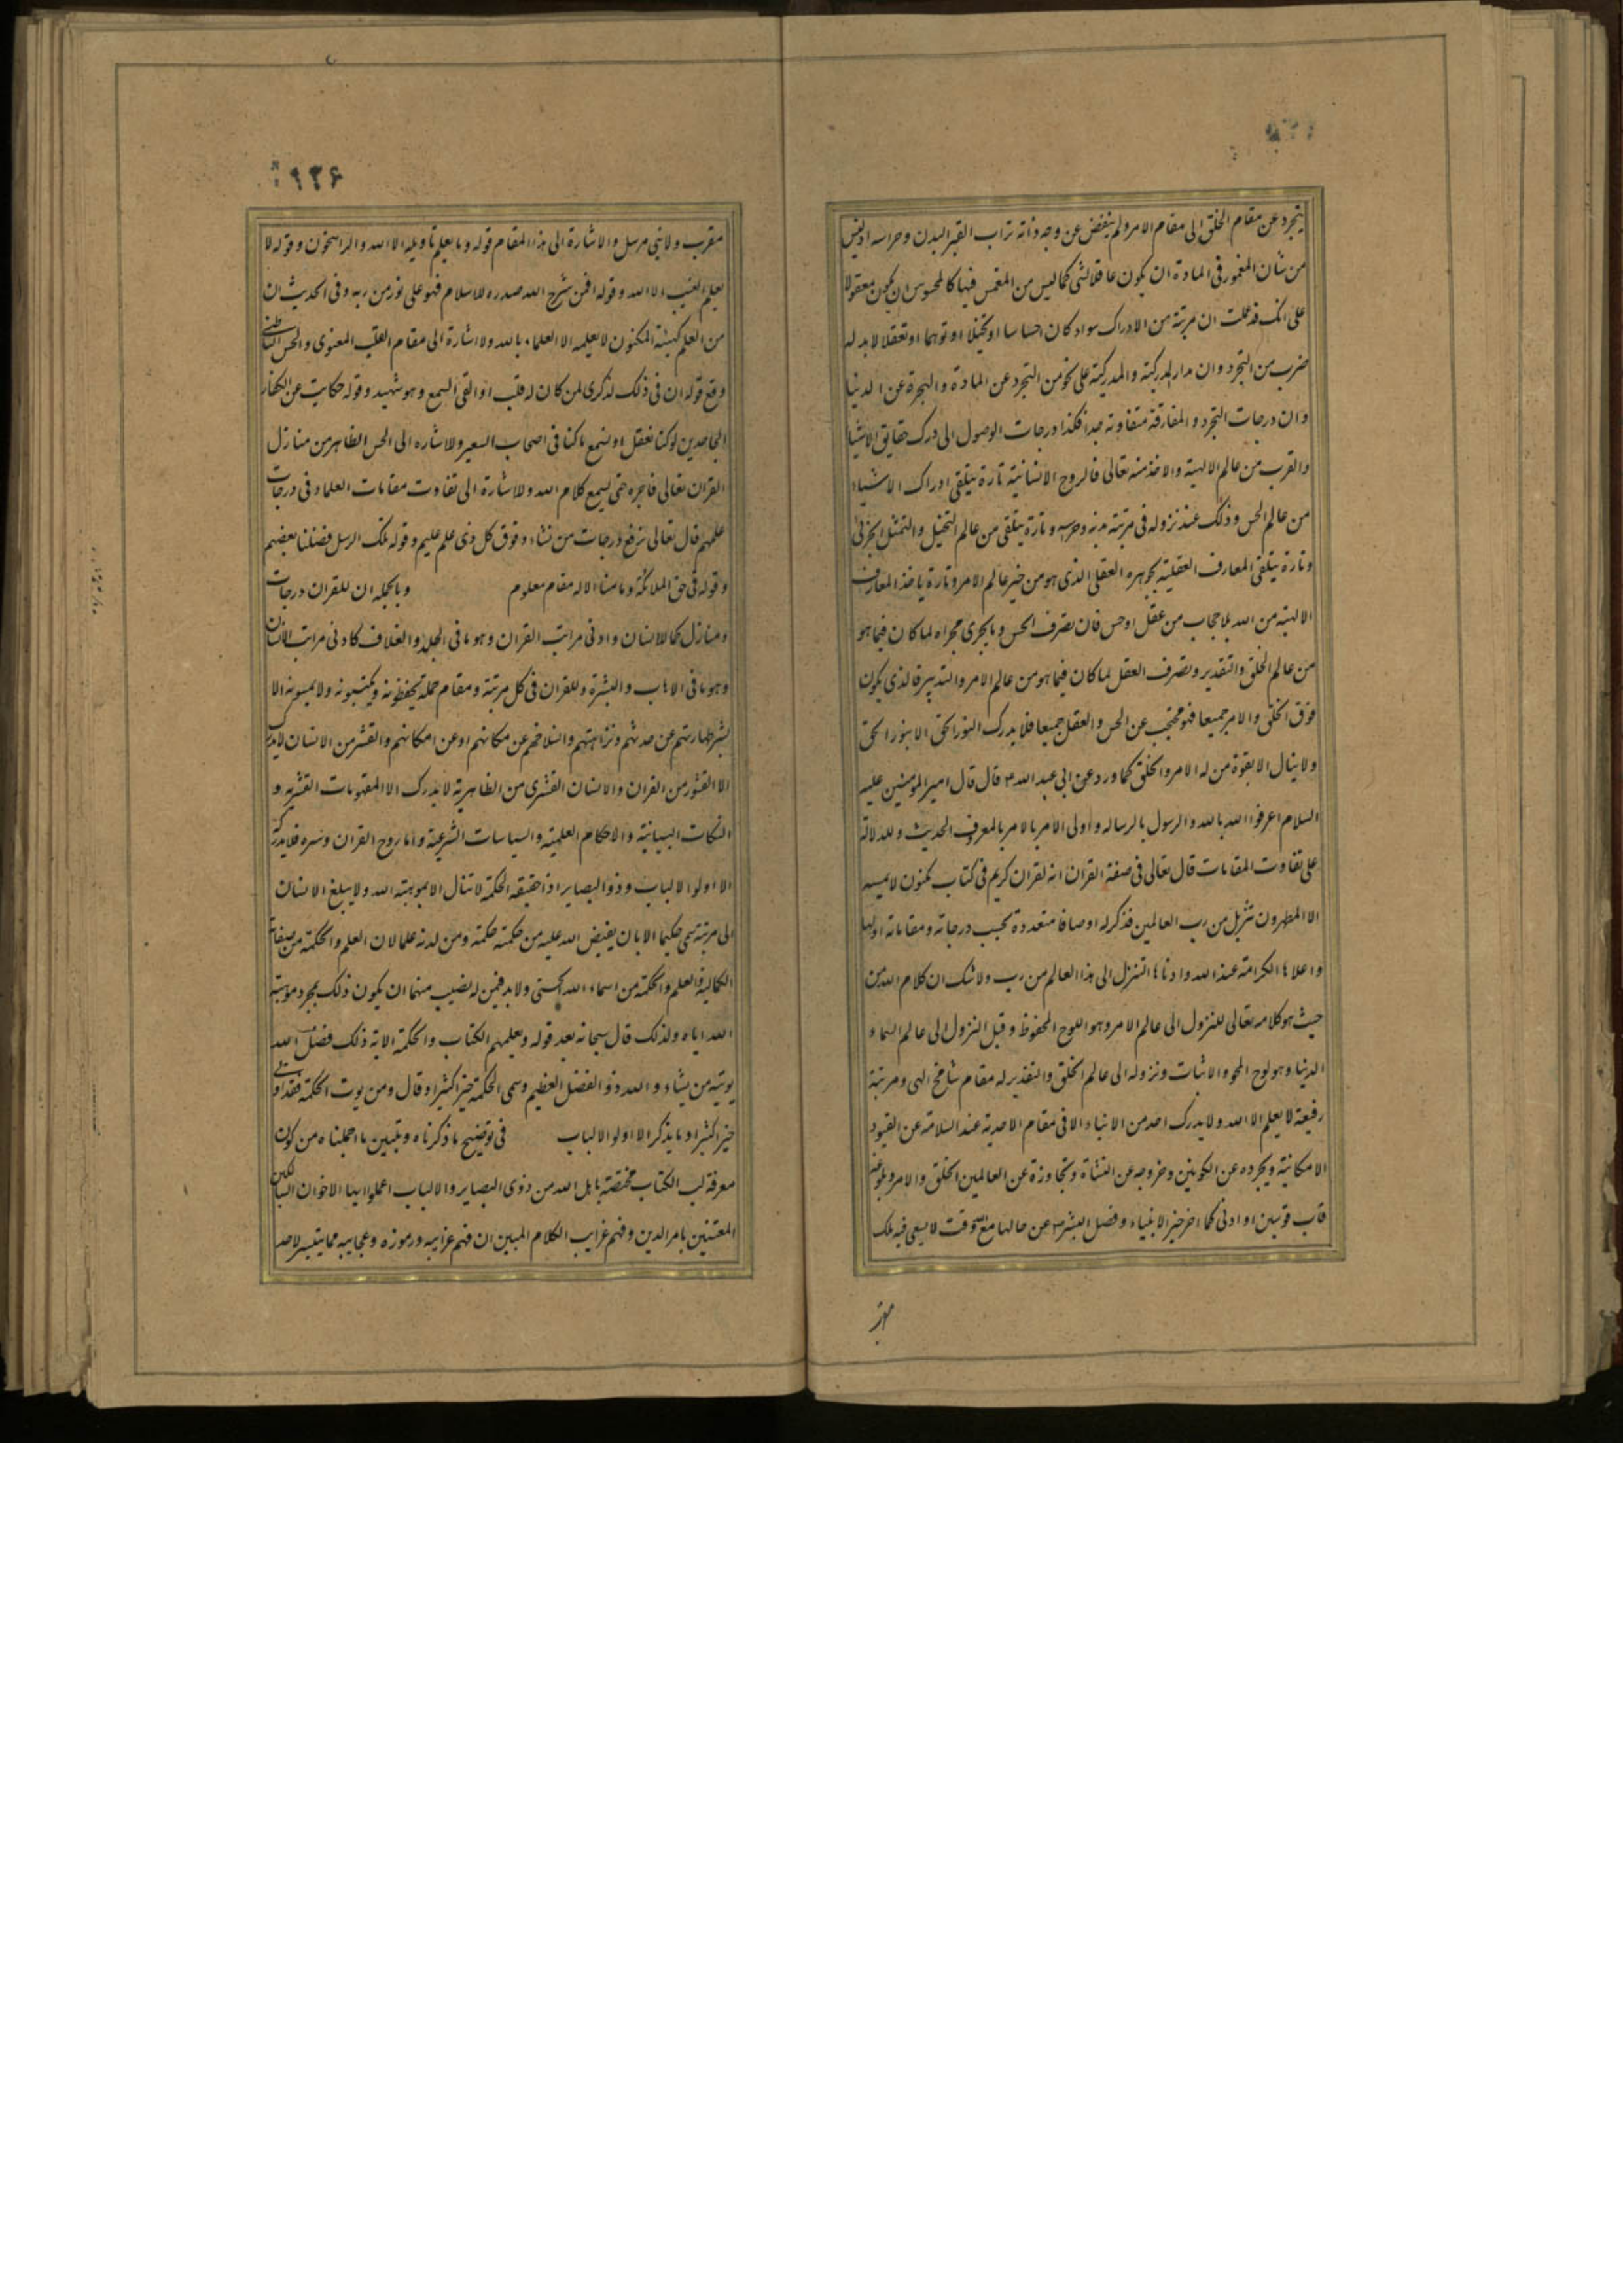 يتجرد عن مقام الخلق الى مقام الامر ولم ينفض عن وجه ذاته تراب القبر البدن وحواسه اذ ليس
من شان المغمور فى المادة ان يكون عاقلا لشى كما ليس من المغمس فيها كالمحسوس ان يكون معقولا
على انك قد علمت ان مرتبة من الادراك سواء كان احساسا او تخيلا او توهما او تعقلا لابد له
ضرب من التجرد وان مدار المدركية والمدركية على نحو من التجرد عن المادة والهجرة عن الدنيا
وان درجات التجرد والمفارقة متفاوته جدا فكذا درجات الوصول الى درك حقايق الاشيا
والقرب من عالم الالهية والاخذ منه تعالى فالروح الانسانية تارة يتلقى ادراك الاشياء
من عالم الحس وذلك عند نزوله فى مرتبة بدنه وحسه وتارة يتلقى من عالم التخيل والتمثل الجزئى
وتارة يتلقى المعارف العقلية بجوهره العقلى الذى هو من خير عالم الامر وتارة ياخذ المعارف
الالهية من الله بلا حجاب من عقل اوحس فان تصرف الحس وما يجرى مجراه لما كان فيما هو
من عالم الخلق والتقدير وتصرف العقل لما كان فيما هو من عالم الامر والتدبير فالذى يكون
فوق الخلق والامر جميعا فهو محتجب عن الحس والعقل جميعا فلا يدرك النور الحق الا بنور الحق
ولا ينال الا بقوة من له الامر والخلق كما ورد عن ابى عبد الله ع قال قال امير المومنين عليه
السلام اعرفوا الله بالله والرسول بالرساله واولى الامر بالامر بالمعروف الحديث وللدلالة
على تفاوت المقامات قال تعالى فى صفة القران انه لقران كريم فى كتاب مكنون لا يمسه
الا المطهرون تنزيل من رب العالمين فذكر له اوصافا متعددة بحسب درجاته ومقاماته اولها
واعلاها الكرامة عند الله وادناها التنزل الى هذا العالم من رب ولا شك ان كلام الله من
حيث هو كلامه تعالى للنزول الى عالم الامر وهو اللوح المحفوظ وقبل النزول الى عالم السماء
الدنيا وهو لوح المحو والاثبات ونزوله الى عالم الخلق والتقدير له مقام شامخ الهى ومرتبة
رفيعة لا يعلم الا الله ولا يدرك احد من الانبياء الا فى مقام الاحدية عند السلامة عن القيود
الامكانية وتجرده عن الكونين وخروجه عن النشاة وتجاوزة عن العالمين الخلق والامر وبلوغه
قاب قوسين او ادنى كما اخر خير الانبياء وفضل البشر عن حالها مع وقت لا يسعى فيه ملك
مقر
۹۳۶
مقرب ولا نبى مرسل والاشارة الى هذا المقام قوله وما يعلم تاويله الا الله والراسخون وقوله لا
يعلم الغيب الا الله وقوله افمن شرح الله صدره للاسلام فهو على نور من ربه وفى الحديث ان
من العلم كهيئة المكنون لا يعلمه الا العلماء بالله ولاشارة الى مقام القلب المعنوى والحس الباطنى
وقع قوله ان فى ذلك لذكرى لمن كان له قلب او القى السمع وهو شهيد وقوله حكايت عن الكفار
الجاحدين لو كنا نعقل او نسمع ما كنا فى اصحاب السعير ولاشاره الى الحس الظاهر من منازل
القران تعالى فاجره حتى يسمع كلام الله ولاشارة الى تفاوت مقامات العلماء فى درجات
علمهم قال تعالى نرفع درجات من نشاء وفوق كل ذى علم عليم وقوله تلك الرسل فضلنا بعضهم
وقوله فى حق الملائكة وما منا الا له مقام معلوم وبالجمله ان للقران درجات
ومنازل كما للانسان وادنى مراتب القران وهو ما فى الجلد والغلاف كادنى مراتب الانسان
وهو ما فى الاهاب والبشرة وللقران فى كل مرتبة ومقام حملة يحفظونه ويكتبونه ولا يمسونه الا
بشرط طهارتهم عن حدثهم ونزاهتهم وانسلاخهم عن مكانهم او عن امكانهم والقشر من الانسان لا يدرك
الا القشور من القران والانسان القشرى من الظاهرية لا يدرك الا المفهومات القشريه و
النكات البيانية والاحكام العلمية والسياسات الشرعية واما روح القران وسره فلا يدركه
الا اولوا الالباب وذو البصاير اذ حقيقه الحكمة لا تنال الا بموهبته الله ولا يبلغ الانسان
الى مرتبة يسمى حكيما الا بان يفيض الله عليه من حكمته حكمة ومن لدنه علما لان العلم والحكمة من صفاته
الكمالية والعلم والحكمة من اسماء الله الحسنى ولابد فيمن له نصيب منهما ان يكون ذلك بمجرد موهبة
الله اياه ولذلك قال سبحانه بعد قوله ويعلمهم الكتاب والحكمة الاية ذلك فضل الله
يوتيه من يشاء والله ذو الفضل العظيم وسمى الحكمة خيرا كثيرا وقال ومن يوت الحكمة فقد اوتى
خيرا كثيرا وما يذكر الا اولو الالباب فى توضيح ما ذكرناه وتبيين ما اجملناه من كون
معرفة لب الكتاب مختصة باهل الله من ذوى البصاير والالباب اعملوا ايها الاخوان السالكين
المعتنين بامر الدين وفهم غرايب الكلام المبين ان فهم غرايبه ورموزه وعجايبه مما يتيسر لاحد